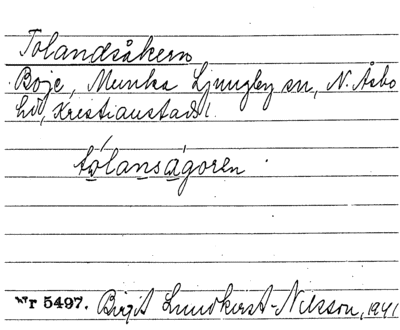 Tolandsåkern
Boje, Munka Ljungby sn, N. Åsbo
hd, Kristianstads l.
tólanságoren
Nr 5497. Birgit Lundkvist-Nilsson, 1941